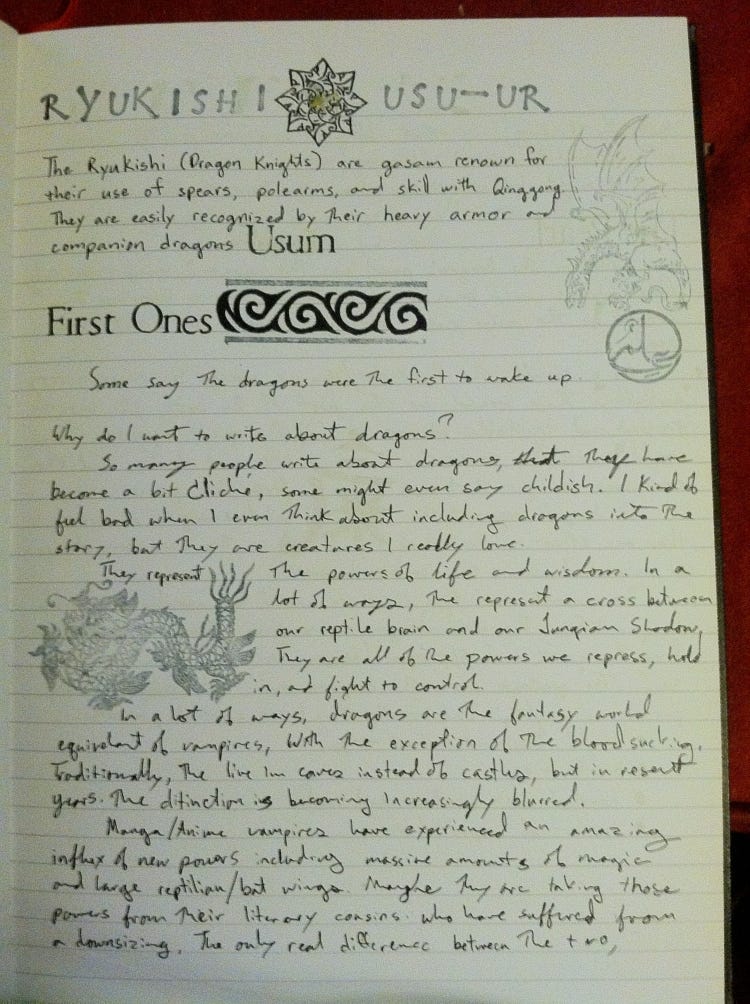 RYUKISHI USU-UR
The Ryukishi (Dragon Knights) are gasam renown for
their use of spears, polearms, and skill with Qinggong.
They are easily recognized by their heavy armor and
companion dragons Usum
First Ones
Some say the dragons were the first to wake up.
Why do I want to write about dragons?
So many people write about dragons, that they have
become a bit Cliché, some might even say childish. I kind of
feel bad when I even think about including dragons into the
story, but they are creatures I really love.
They represent The powers of life and wisdom. In a
lot of ways, the represent a cross between
our reptile brain and our Jungian Shadow,
They are all of the powers we repress, hold
in, ad fight to control.
In a lot of ways, dragons are the fantasy world
equivelant of vampires, with the exception of the bloodsucking.
Traditionally, the live in caves instead of castles, but in resent
years. The ditinction is becoming increasingly blurred.
Manga/Anime vampires have experienced an amazing
influx of new powers including massive amounts of magic
and large reptilian/bat wings. Maybe they are taking those
powers from their literary cousins who have suffered from
a downsizing. The only real difference between the two,